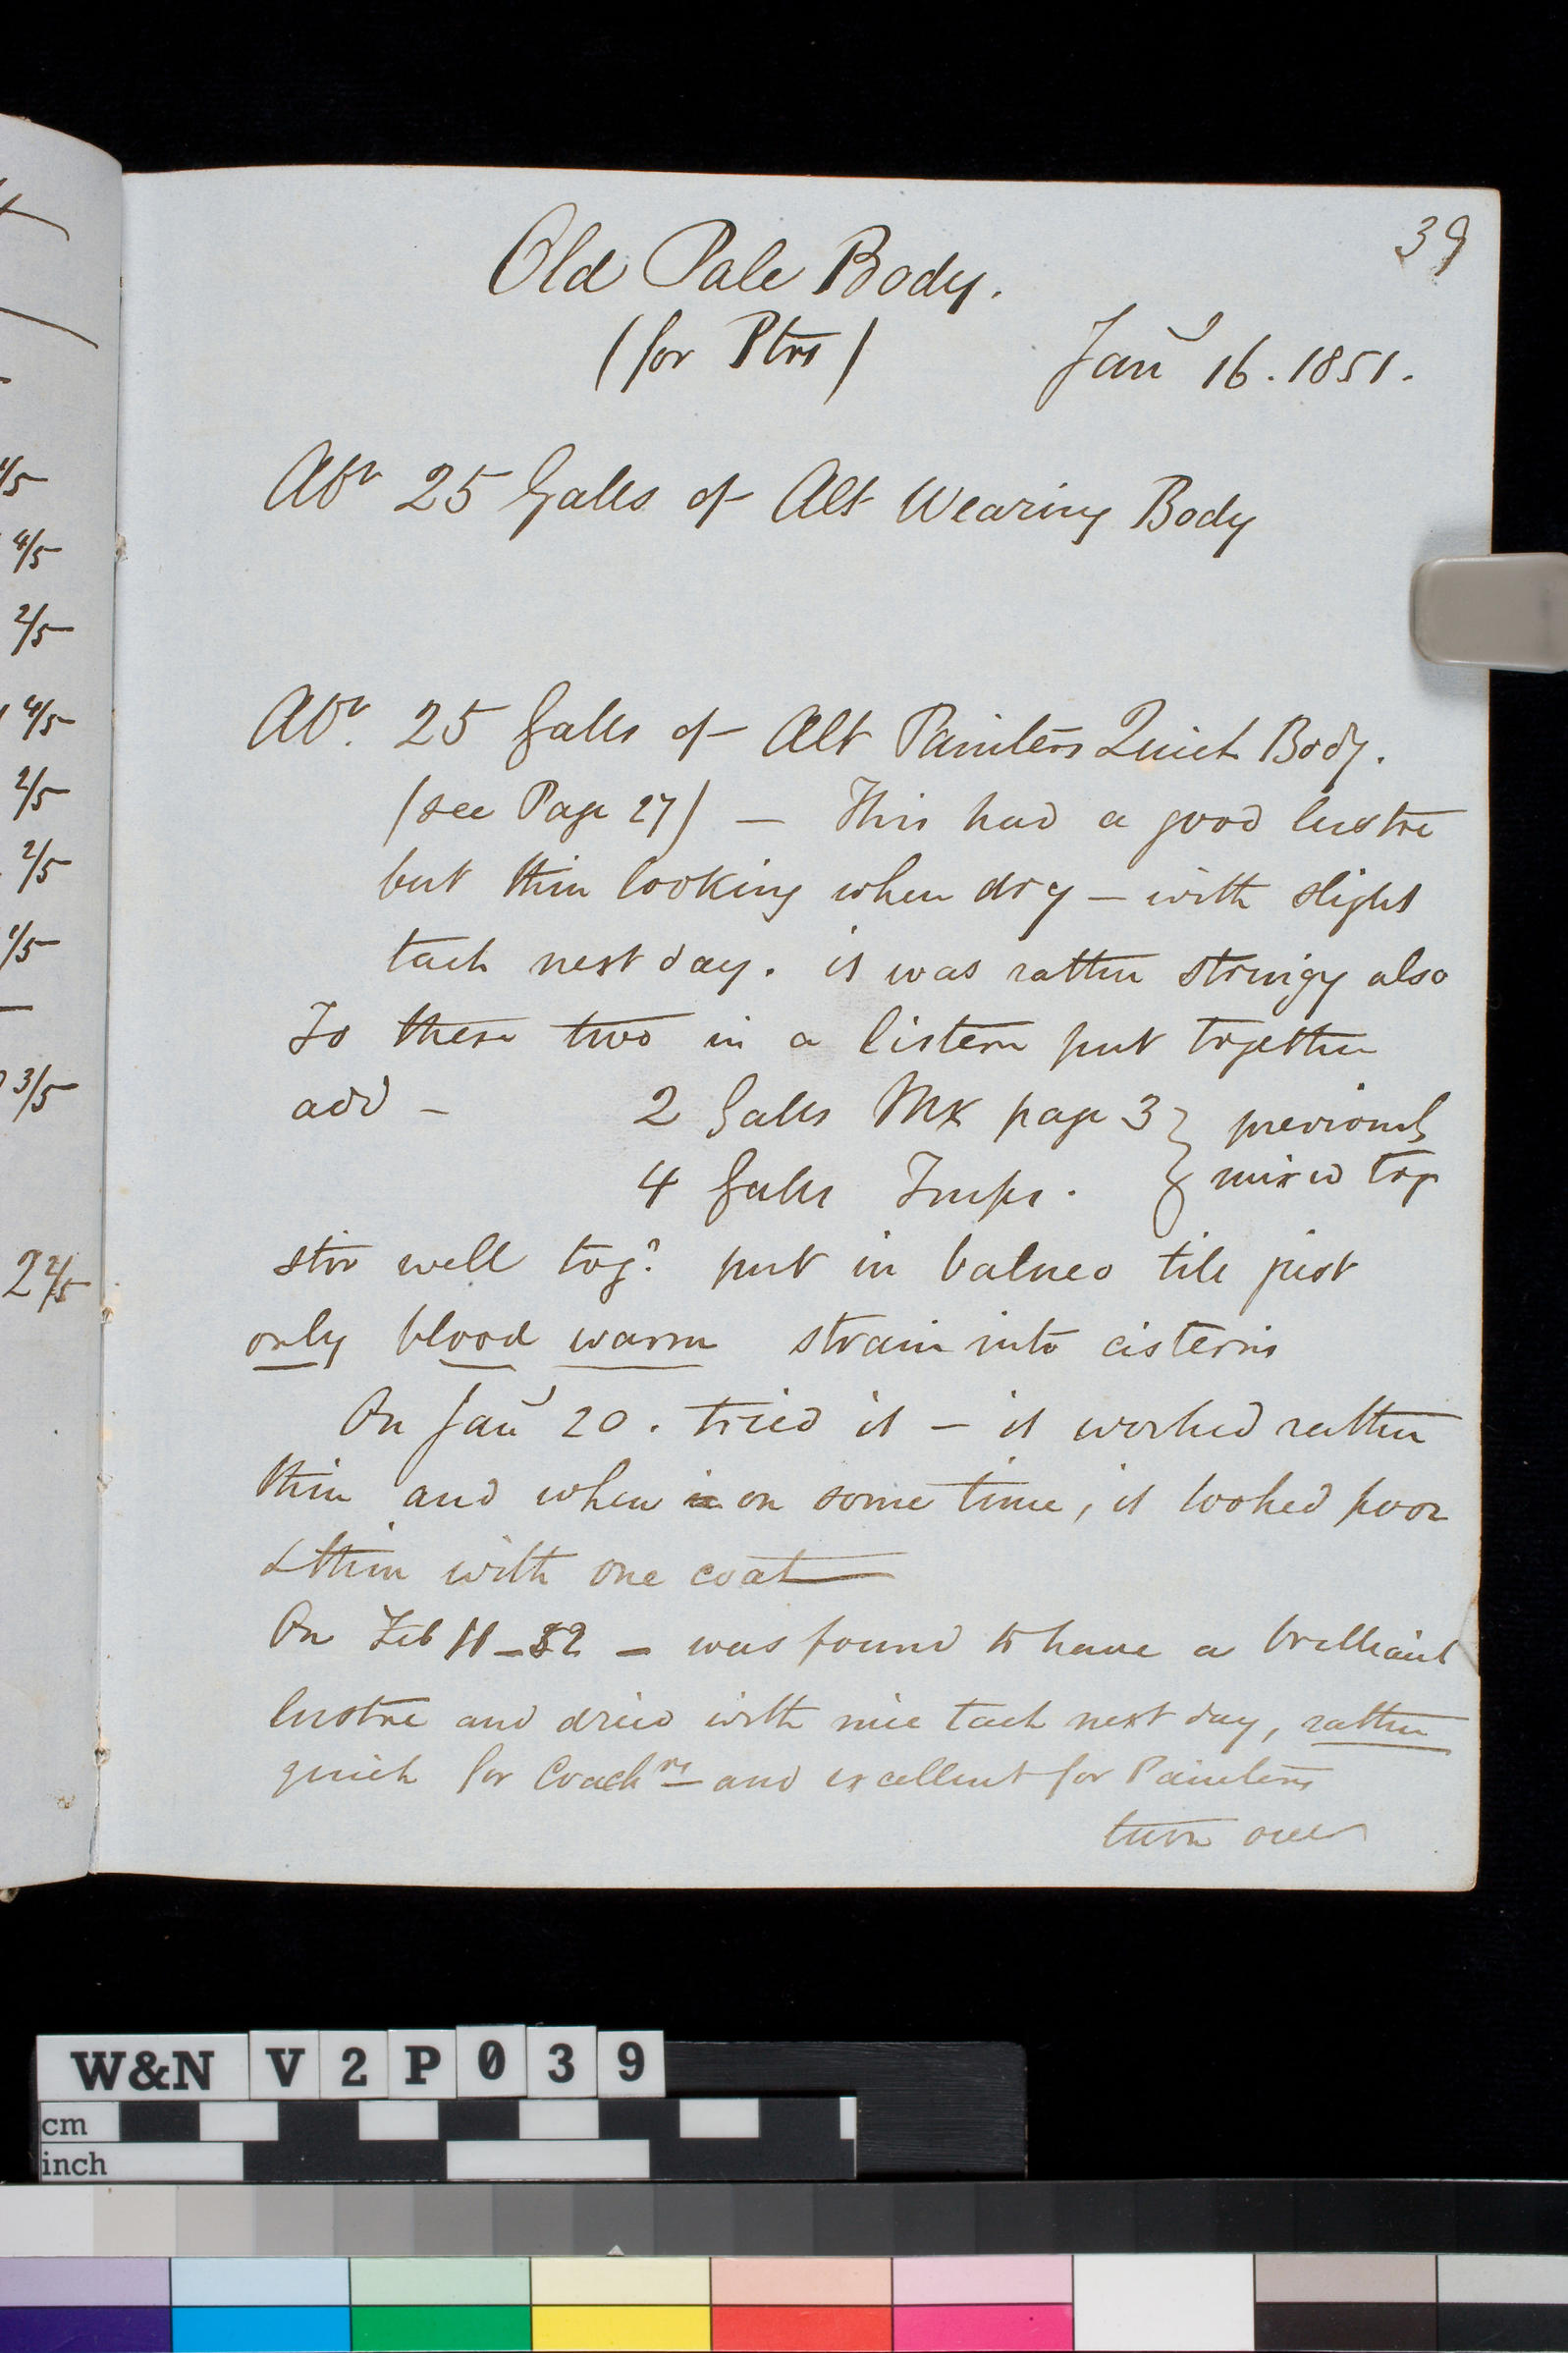 39
Old Pale Body.
(for Ptrs)
Jany 16. 1851.
Abt 25 Galls of Alt Wearing Body
Abt. 25 Galls of Alt Painters Quick Body.
(see Page 27) — This had a good lustre
but thin looking when dry — with slight
tack next day. it was rather stringy also
To these two in a Cistern put together
add — 2 Galls MX page 3 } previously
4 Galls Turps. } mixed tog
stir well togr put in balneo till just
only blood warm strain into cisterns
On Jany 20. tried it — it worked rather
thin and when on some time, it looked poor
& thin with one coat
On Feb 11 – 52 – was found to have a brilliant
lustre and dried with nice tack next day, rather
quick for Coachrs — and excellent for Painters
turn over
1/5
4/5
2/5
4/5
2/5
2/5
1/5
3/5
2 2/5
W&N V2P039
cm
inch